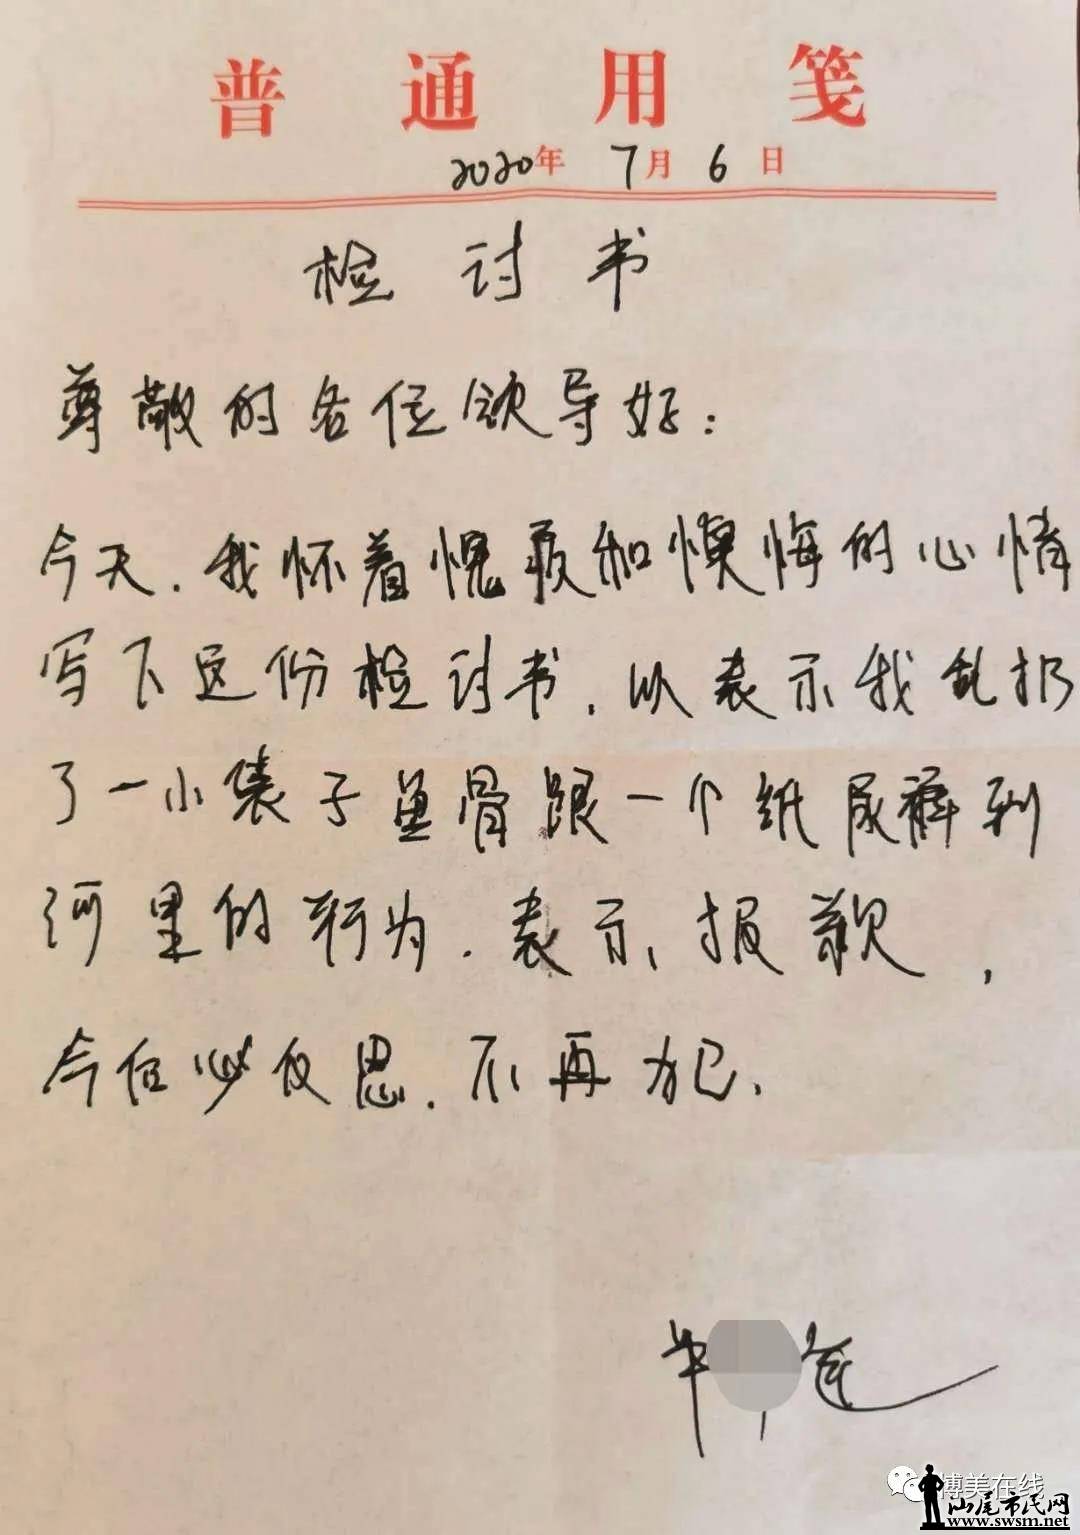 普通用笺
2020年7月6日
检讨书
尊敬的各位领导好：
今天，我怀着愧疚和懊悔的心情
写下这份检讨书，以表示我乱扔
了一小袋子鱼骨跟一个纸尿裤到
河里的行为，表示报歉，
今后必反思，不再犯、
博美在线
汕尾市民网
www.swsm.net